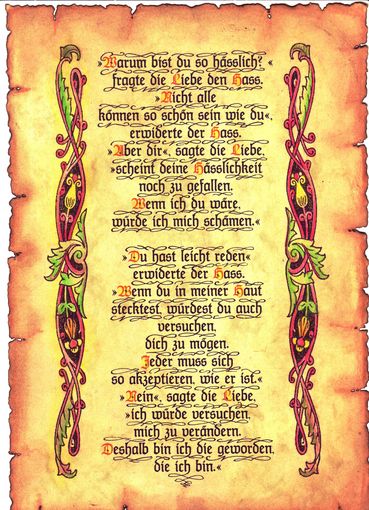 »Warum bist du so hässlich?«
fragte die Liebe den Hass.
»Nicht alle
können so schön sein wie du«,
erwiderte der Hass.
»Aber dir«, sagte die Liebe,
»scheint deine Hässlichkeit
noch zu gefallen.
Wenn ich du wäre,
würde ich mich schämen.«
»Du hast leicht reden«
erwiderte der Hass.
»Wenn du in meiner Haut
stecktest, würdest du auch
versuchen,
dich zu mögen.
Jeder muss sich
so akzeptieren, wie er ist.«
»Nein«, sagte die Liebe,
»ich würde versuchen,
mich zu verändern.
Deshalb bin ich die geworden,
die ich bin.«